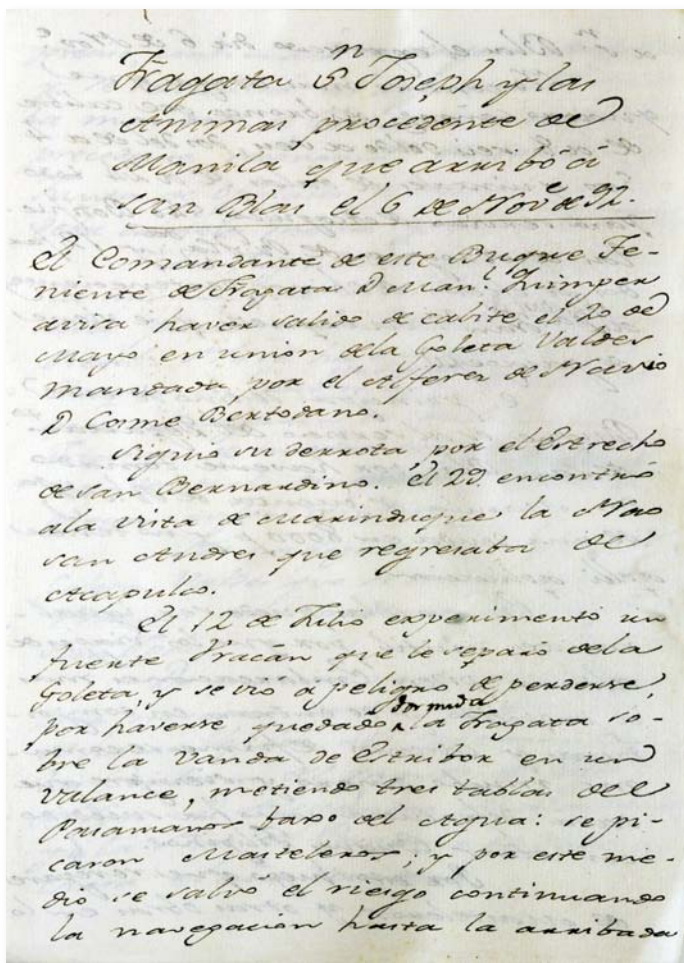 Fragata Sn Joseph y las
Animas procedente de
Manila que arribó á
san Blas el 6 de Nove de 92.
El Comandante de este Buque Te-
niente de Fragata D Manl. Quimper
avisa haver salido de cabite el 20 de
Mayo en union dela Goleta Valdes
mandada por el Alferes de Navio
D Cosme Bertodano.
siguio su derrota por el Estrecho
de san Bernardino. el 29 encontró
ala vista de Marinduque la Nao
san Andres que regresaba de
Acapulco.
El 12 de Julio experimentó un
fuerte Vracán que le separó dela
Goleta, y se vio a peligro de perderse,
por haverse quedado dormida la Fragata so-
bre la vanda de Estribor en un
valance, metiendo tres tablas del
Pasamanos baxo del Agua: se pi-
caron Masteleros; y por este me-
dio se salvó el riesgo continuando
la navegacion hasta la arribada